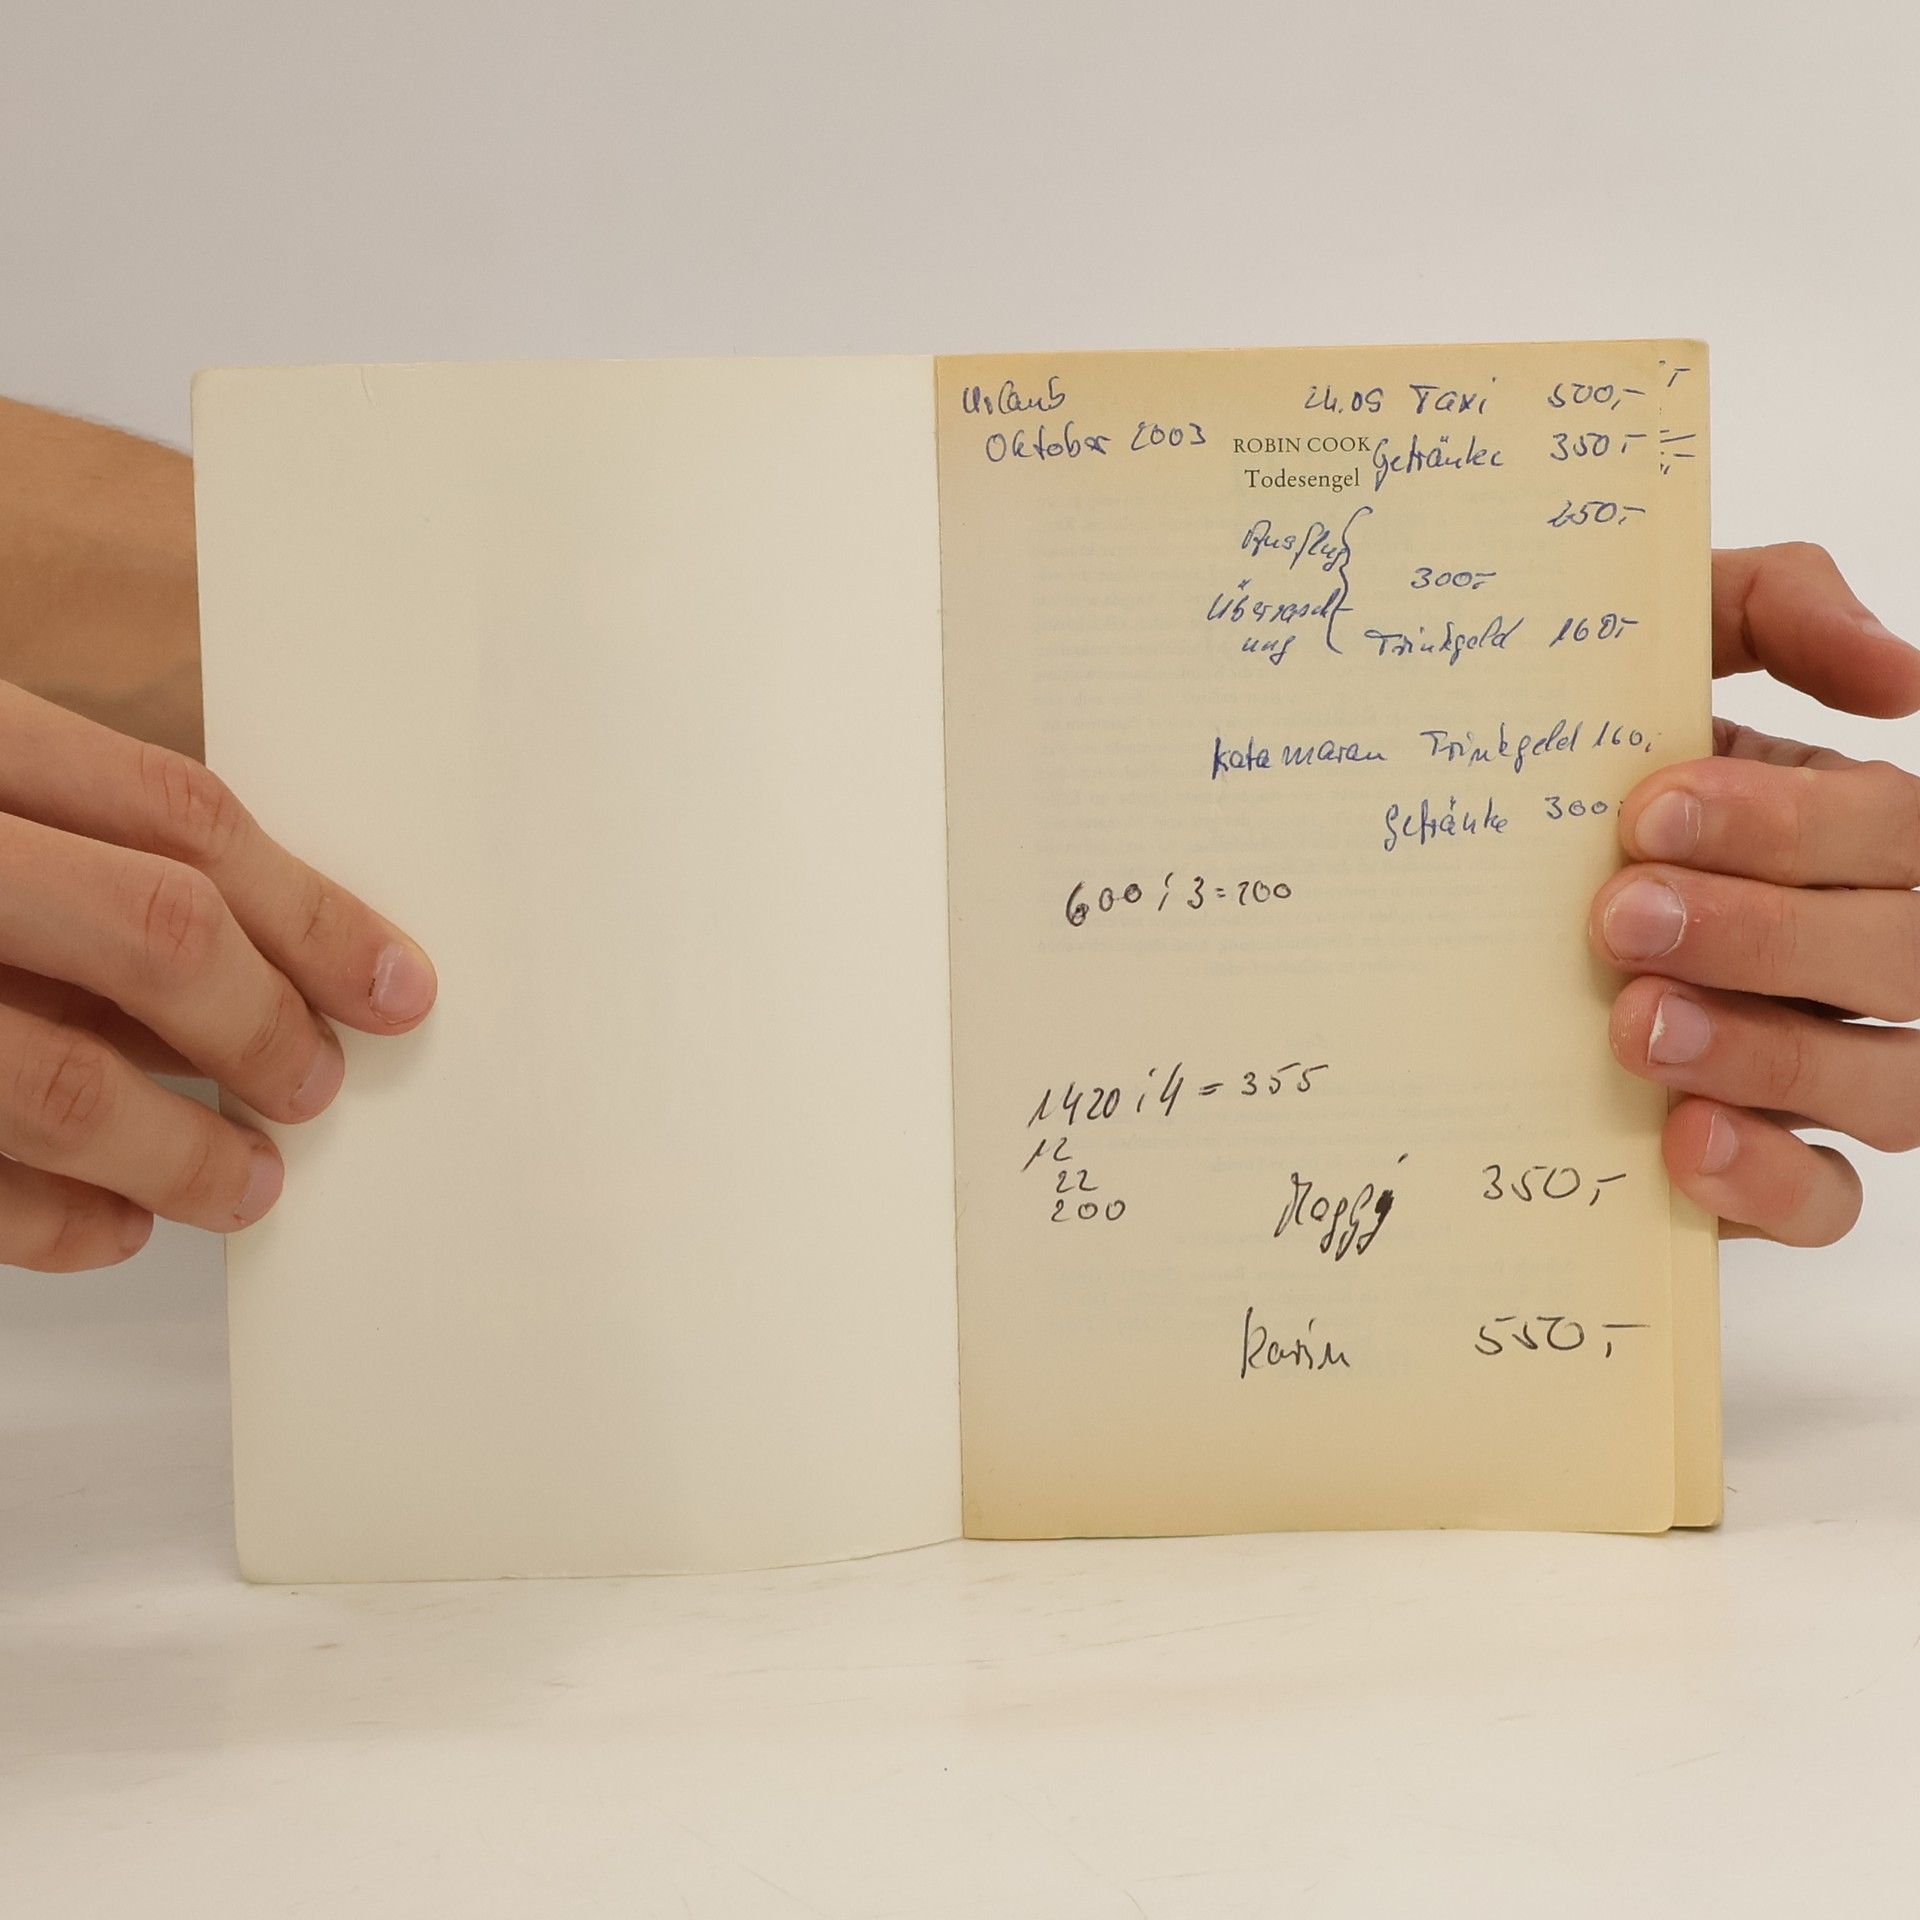 Urlaub 24.09 Taxi 500,-
Oktober 2003
ROBIN COOK Getränke 350,-
Todesengel
250,-
Ausflug
300,-
Überrasch-
ung Trinkgeld 160,-
Katamaran Trinkgeld 160,
Getränke 300,
600 : 3 = 200
1420 : 4 = 355
12
22
200
Maggy 350,-
Karin 550,-